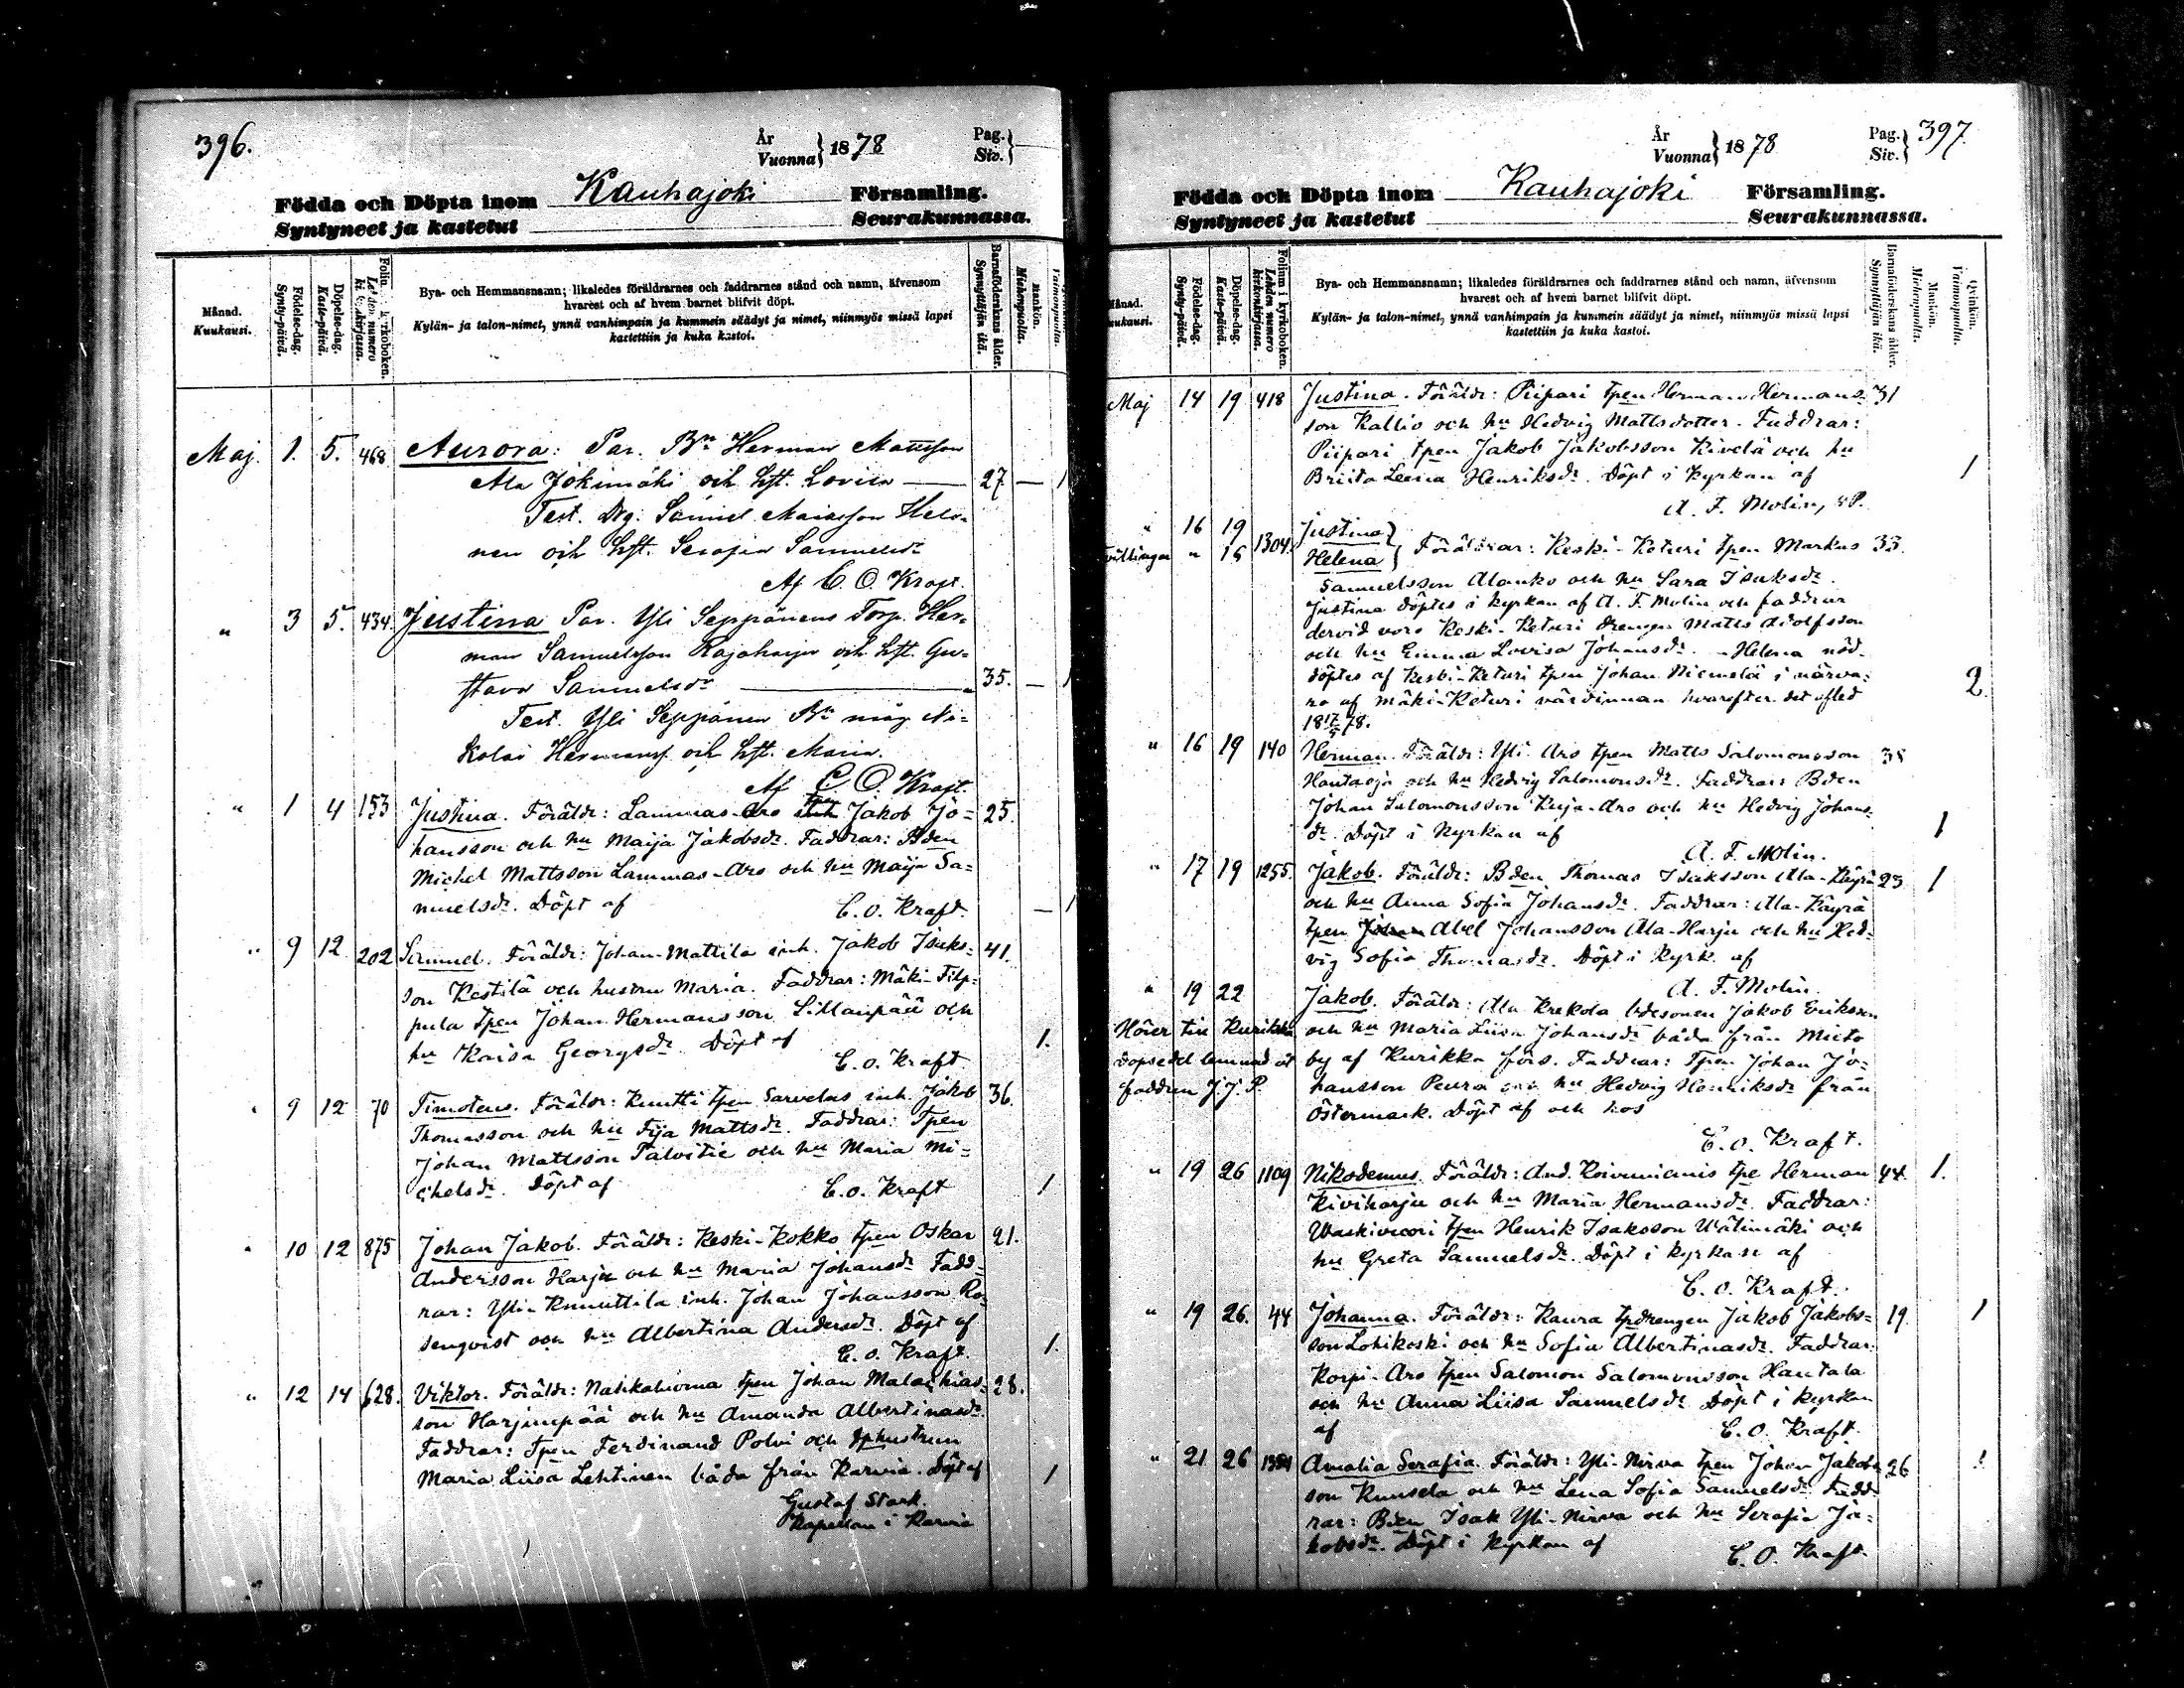 396.
År
Vuonna } 1878
Pag.
Siv. }
Födda och Döpta inom Kauhajoki Församling.
Syntyneet ja kastetut Seurakunnassa.
Månad.
Kuukausi.
Födelse-dag.
Synty-päivä.
Döpelse-dag.
Kaste-päivä.
Bya- och Hemmansnamn; likaledes föräldrarnes och faddrarnes stånd och namn, äfvensom
hvarest och af hvem barnet blifvit döpt.
Kylän- ja talon-nimet, ynnä vanhimpain ja kummein säädyt ja nimet, niinmyös missä lapsi
kastettiin ja kuka kastoi.
Barnaföderskans ålder.
Synnyttäjän ikä.
Mankön.
Miehenpuolia.
Vaimonpuolia.
Maj. 1. 5. 468 Aurora: Par. Bn Herman Mattsson
Ala Jokimäki och hst. Lovisa — 27 — 1
Test. Drg. Samuel Mattsson
och hst. Serafia Samuelsdr
Af C. O. Kraft.
" 3 5. 434. Justina Par. Yli Seppänens Torp. Her-
man Samuelsson Rajaharju och hst. Gu-
stava Samuelsdr — 35. — 1
Test. Yli Seppänen Bn måg Ni-
kolai Hermanss. och hst. Maria.
Af C. O. Kraft.
" 1 4 153 Justina. Föräldr: Lammas-Aro tpen Jakob Jo- 25.
hansson och hu Maija Jakobsdr. Faddrar: Bden
Michel Mattsson Lammas-Aro och hu Maija Sa-
muelsdr. Döpt af C. O. Kraft. — 1
" 9 12 202 Samuel. Föräldr: Johan-Mattila inh. Jakob Isaks- 41.
son Kestilä och hustru Maria. Faddrar: Mäki-Filp-
pula tpen Johan Hermansson Sillanpää och
hu Kaisa Georgsdr. Döpt af C. O. Kraft. 1.
" 9 12 70 Timoteus. Föräldr: Knutti tpen Sarvelas inh. Jakob 36.
Thomasson och hu Fija Mattsdr. Faddrar: Tpen
Johan Mattsson Talvitie och hu Maria Mi-
chelsdr. Döpt af C. O. Kraft 1
" 10 12 875 Johan Jakob. Föräldr: Keski-Kokko tpen Oskar 21.
Andersson Harju och hu Maria Johansdr. Fadd-
rar: Yli-Knuuttila inh. Johan Johansson Ro-
senqvist och hu Albertina Andersdr. Döpt af
C. O. Kraft. 1.
" 12 14 628. Viktor. Föräldr: Nahkaluoma tpen Johan Malachias- 28.
son Harjunpää och hu Amanda Albertinasdr.
Faddrar: Tpen Ferdinand Polvi och tphustrun
Maria Liisa Lehtinen båda från Karvia. Döpt af 1
Gustaf Stark.
Kapellan i Karvia
År
Vuonna } 1878
Pag.
Siv. } 397.
Födda och Döpta inom Kauhajoki Församling.
Syntyneet ja kastetut Seurakunnassa.
Månad.
Kuukausi.
Födelse-dag.
Synty-päivä.
Döpelse-dag.
Kaste-päivä.
Folium i kyrkoboken.
Lehden numero
kirkonkirjassa.
Bya- och Hemmansnamn; likaledes föräldrarnes och faddrarnes stånd och namn, äfvensom
hvarest och af hvem barnet blifvit döpt.
Kylän- ja talon-nimet, ynnä vanhimpain ja kummein säädyt ja nimet, niinmyös missä lapsi
kastettiin ja kuka kastoi.
Barnaföderskans ålder.
Synnyttäjän ikä.
Mankön.
Miehenpuolia.
Qvinkön.
Vaimonpuolia.
Maj 14 19 418 Justina. Föräldr: Piipari tpen Herman Hermans- 31
son Kallio och hu Hedvig Mattsdotter. Faddrar:
Piipari tpen Jakob Jakobsson Kivelä och hu
Briita Leena Henriksdr. Döpt i Kyrkan af 1
A. F. Molin, vP.
" 16 19 Justina }
tvillingar " 16 1304. Helena } Föräldrar: Keski-Keturi tpen Markus 33.
Samuelsson Alanko och hu Sara Isaksdr.
Justina döptes i kyrkan af A. F. Molin och faddrar
dervid voro Keski-Keturi drengen Matts Adolfsson
och hu Emma Lovisa Johansdr. – Helena nöd-
döptes af Keski-Keturi tpen Johan Niemelä i närva-
ro af Mäki-Keturi värdinnan hvarefter det afled 2.
18 17/5 78.
" 16 19 140 Herman. Föräldr: Yli-Aro tpen Matts Salomonsson 38
Hautaoja och hu Hedvig Salomonsdr. Faddrar: Bden
Johan Salomonsson Kuja-Aro och hu Hedvig Johans-
dr. Döpt i Kyrkan af 1
A. F. Molin.
" 17 19 1255. Jakob. Föräldr: Bden Thomas Isaksson Ala-Käyrä 23 1
och hu Anna Sofia Johansdr. Faddrar: Ala-Käyrä
tpen Johan Abel Johansson Ala-Harju och hu Hed-
vig Sofia Thomasdr. Döpt i kyrk. af
A. F. Molin.
" 19 22 Jakob. Föräldr: Ala Krekola bdesonen Jakob Eriksson
Hörer till Kurikka och hu Maria Liisa Johansdr båda från Mieto
dopsedel lemnad åt by af Kurikka förs. Faddrar: Tpen Johan Jo-
faddren J. J. P. hansson Peura och hu Hedvig Henriksdr från
Östermark. Döpt af och hos
C. O. Kraft.
" 19 26 1109 Nikodemus. Föräldr: And. Koivumianis tpe Herman 44. 1.
Kiviharju och hu Maria Hermansdr. Faddrar:
Waskivuori tpen Henrik Isaksson Wälimäki och
hu Greta Samuelsdr. Döpt i kyrkan af
C. O. Kraft.
" 19 26. 44 Johanna. Föräldr: Kaura tpdrengen Jakob Jakobs- 19. 1
son Lohikoski och hu Sofia Albertinasdr. Faddrar:
Korpi-Aro tpen Salomon Salomonsson Hautala
och hu Anna Liisa Samuelsdr. Döpt i kyrkan
af C. O. Kraft.
" 21 26 Amalia Serafia. Föräldr: Yli-Nirva tpen Johan Jakobs- 26 1
son Kuusela och hu Lena Sofia Samuelsdr. Fadd-
rar: Bden Isak Yli-Nirva och hu Serafia Ja-
kobsdr. Döpt i kyrkan af C. O. Kraft.